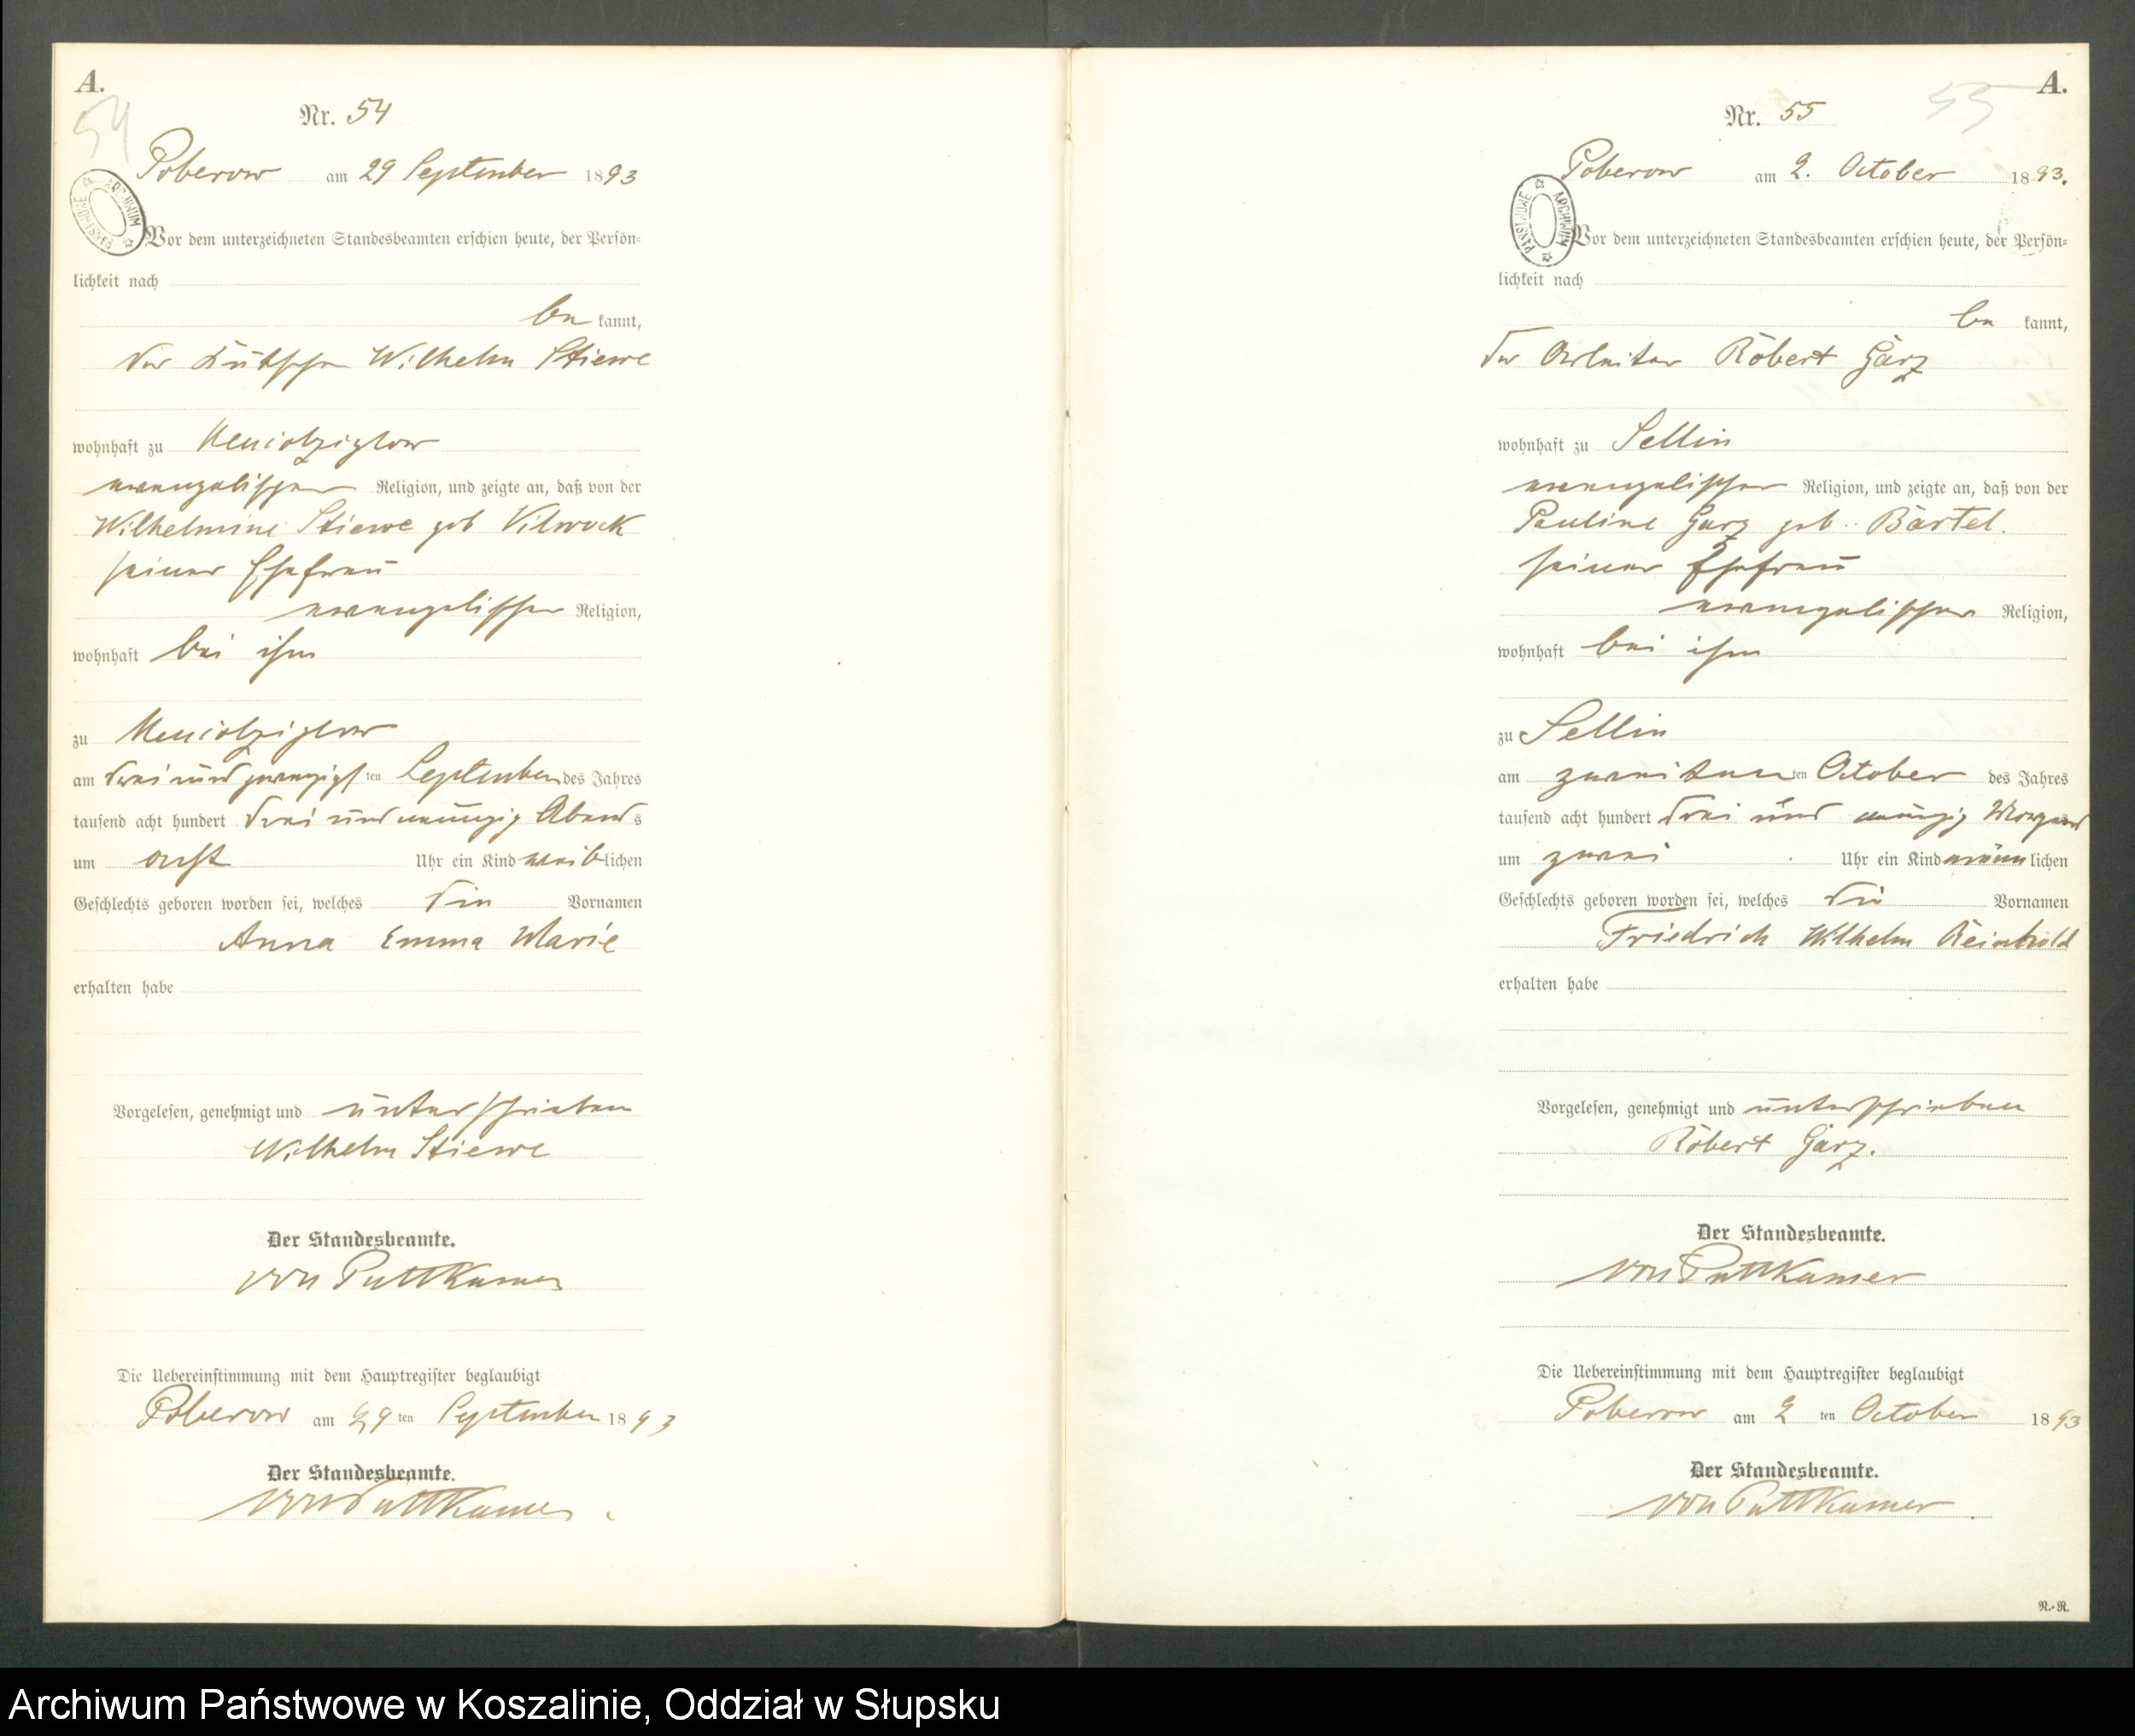 A.
54
Nr. 54
Poberow am 29 September 1893
ARCHIWUM PAŃSTWOWE
Vor dem unterzeichneten Standesbeamten erschien heute, der Persön-
lichkeit nach
be kannt,
der Kutscher Wilhelm Stiewe
wohnhaft zu
evangelischer Religion, und zeigte an, daß von der
Wilhelmine Stiewe geb Vilwock
seiner Ehefrau
evangelischer Religion,
wohnhaft bei ihm
zu
am drei und zwanzigsten September des Jahres
tausend acht hundert drei und neunzig Abends
um acht Uhr ein Kind weiblichen
Geschlechts geboren worden sei, welches die Vornamen
Anna Emma Marie
erhalten habe
Vorgelesen, genehmigt und unterschrieben
Wilhelm Stiewe
Der Standesbeamte.
von Puttkamer
Die Uebereinstimmung mit dem Hauptregister beglaubigt
Poberow am 29 ten September 1893
Der Standesbeamte.
von Puttkamer.
A.
55
Nr. 55
Poberow am 2. October 1893.
ARCHIWUM PAŃSTWOWE
Vor dem unterzeichneten Standesbeamten erschien heute, der Persön-
lichkeit nach
be kannt,
der Arbeiter Robert Garz
wohnhaft zu Sellin
evangelischer Religion, und zeigte an, daß von der
Pauline Garz geb. Bartel.
seiner Ehefrau
evangelischer Religion,
wohnhaft bei ihm
zu Sellin
am zweiten ten October des Jahres
tausend acht hundert drei und neunzig Morgens
um zwei Uhr ein Kind männlichen
Geschlechts geboren worden sei, welches die Vornamen
Friedrich Wilhelm Reinhold
erhalten habe
Vorgelesen, genehmigt und unterschrieben
Robert Garz.
Der Standesbeamte.
von Puttkamer
Die Uebereinstimmung mit dem Hauptregister beglaubigt
Poberow am 2 ten October 1893
Der Standesbeamte.
von Puttkamer
R.-R.
Archiwum Państwowe w Koszalinie, Oddział w Słupsku